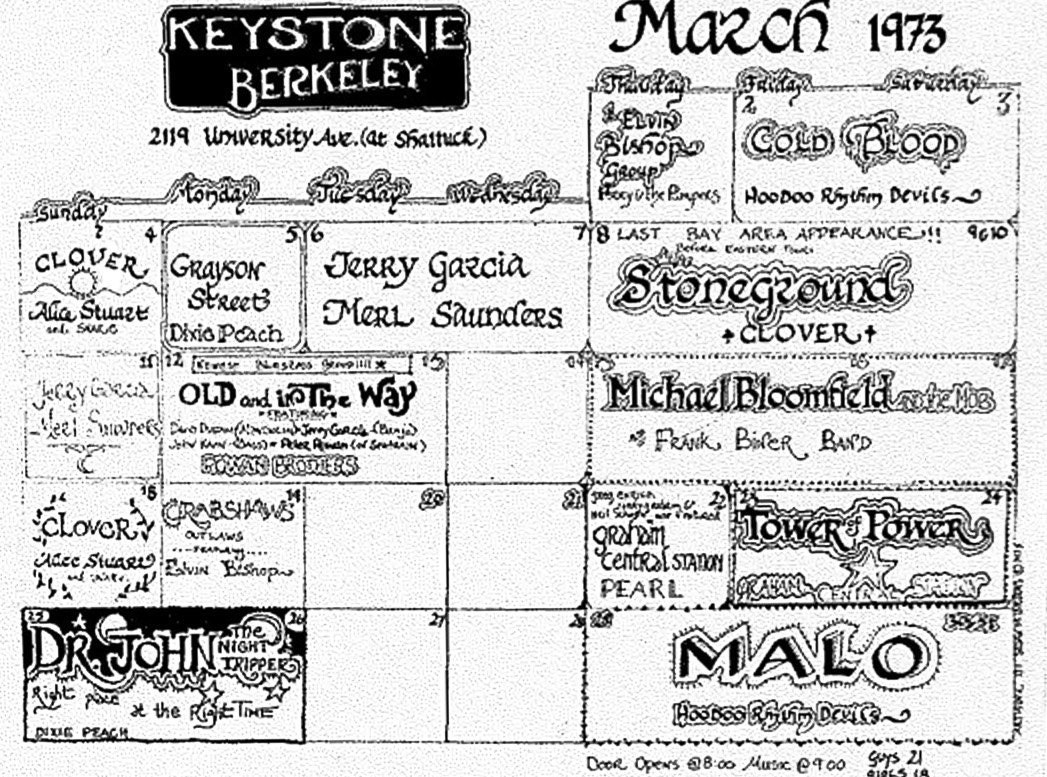 KEYSTONE
BERKELEY
March 1973
2119 University Ave. (at Shattuck)
Thursday Friday Saturday
ELVIN
Bishop
Group
2 3
COLD BLOOD
HOODOO Rhythm Devils
Sunday Monday Tuesday Wednesday
4
CLOVER
Alice Stuart
and
5
GRAYSON
Street
Dixie Peach
6 7
Jerry Garcia
MERL Saunders
8 LAST BAY AREA APPEARANCE !!! 9&10
BEFORE EASTERN TOUR
Stoneground
CLOVER
11
Jerry Garcia
Merl Saunders
12 13
OLD and in The Way
FEATURING
ROWAN BROTHERS
14
15 16 17
Michael Bloomfield
FRANK BINER BAND
18
CLOVER
Alice Stuart
and
19
CRABSHAWS
OUTLAWS
FEATURING
Elvin Bishop
20
21
22
graham
central STATION
PEARL
23 24
TOWER of POWER
GRAHAM CENTRAL STATION
25 26
DR. JOHN The
NIGHT
TRIPPER
Right place
at the Right TIME
DIXIE PEACH
27
28
29
MALO
HOODOO Rhythm Devils
DOOR Opens @8:00 Music @9:00
Guys 21
GIRLS 18